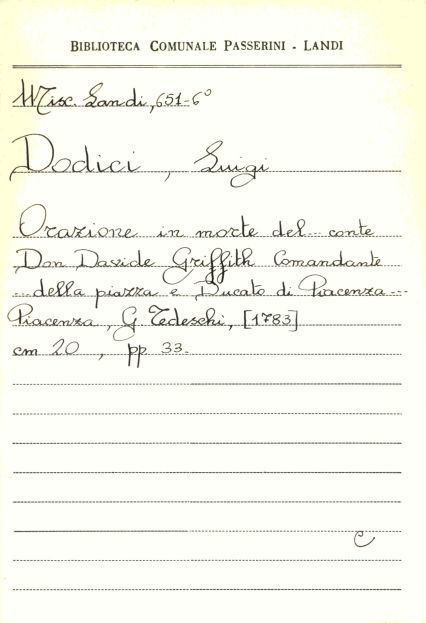 BIBLIOTECA COMUNALE PASSERINI - LANDI
Misc. Landi, 651-6°
Dodici, Luigi
Orazione in morte del... conte
Don Davide Griffith Comandante
...della piazza e Ducato di Piacenza...
Piacenza, G Tedeschi, [1783]
cm 20, pp 33.
C